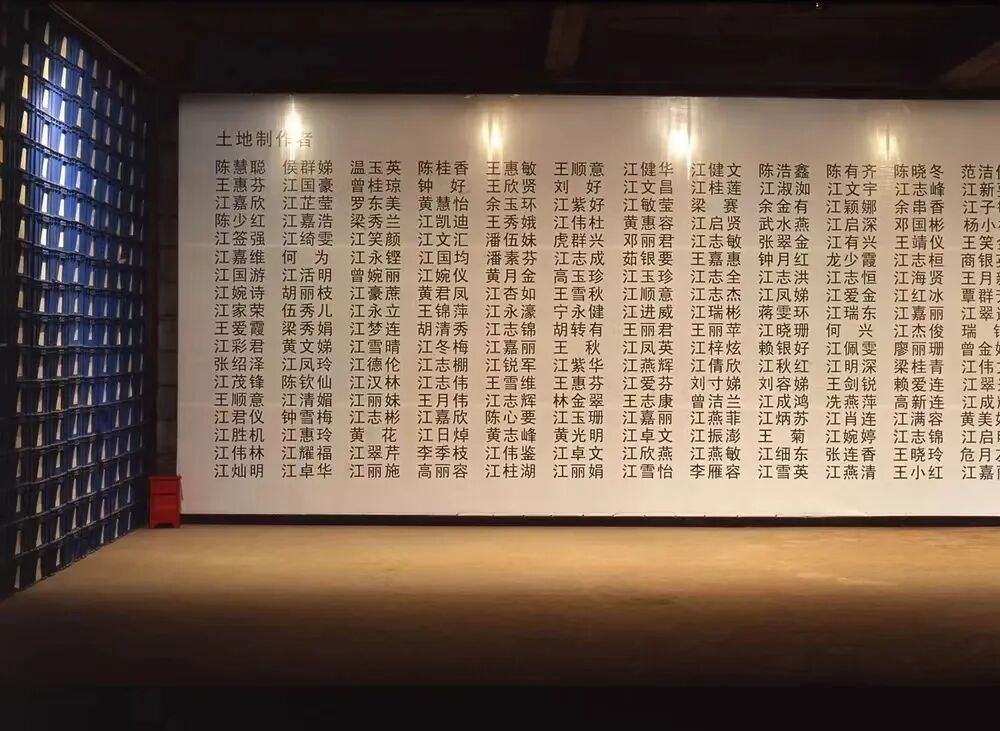 土地制作者
陈慧聪 侯群娣 温玉英 陈桂香 王惠敏 王顺意 江健华 江健文 陈浩鑫 陈有齐 陈晓冬 范洁
王惠芬 江国豪 曾桂琼 钟好 王欣贤 刘好 江文昌 江桂莲 江淑洳 江文宇 江志峰 江新
江嘉欣 江芷莹 罗东美 黄慧怡 余玉环 江紫好 江敏莹 梁赛 余金有 江颖娜 余串香 江子
陈少红 江嘉浩 梁秀兰 江凯迪 王秀娥 江伟杜 黄惠容 江启贤 武水燕 江启深 邓国彬 杨小
江签强 江绮雯 江笑颜 江文汇 潘伍妹 虎群兴 邓丽君 江志敏 张翠金 江有兴 王靖仪 王笑
江嘉维 何为 江永铿 江国均 潘素芬 江志成 茹银要 王嘉惠 钟月红 龙少霞 江志桓 商银
江国游 江活明 曾婉丽 江婉仪 黄月金 高玉珍 江玉珍 江志全 江志洪 江志恒 江海贤 王月
江婉诗 胡丽枝 江豪蔗 黄君凤 江杏如 王雪秋 江顺意 江志杰 江凤娣 江爱金 江红冰 覃群
江家荣 伍秀儿 江永立 王锦萍 江永濠 宁永健 江进威 江瑞彬 蒋雯环 江瑞东 江嘉丽 江翠
王爱霞 梁秀娟 江梦连 胡清秀 江志锦 胡转有 王丽君 王丽苹 江晓珊 何兴 江杰俊 瑞
江彩君 黄文娣 江雪晴 江冬梅 江嘉丽 王秋 江凤英 江梓炫 赖银好 江佩雯 廖丽珊 曾金
张绍泽 江凤玲 江德伦 江志棚 江锐军 江紫华 江燕辉 江倩欣 江秋红 江明深 梁桂青 江伟
江茂锋 陈钦仙 江汉林 江志伟 王雪维 王惠芬 江爱芬 刘寸娣 刘容娣 王剑锐 赖爱连 江三
王顺意 江清媚 江丽妹 王月伟 江志辉 林金翠 王志康 曾洁兰 江成鸿 冼燕萍 高新连 江成
江君仪 钟雪梅 江志彬 江嘉欣 陈心要 江玉珊 江嘉丽 江燕菲 江炳苏 江肖连 江满容 黄美
江胜机 江惠玲 黄花 江日焯 黄志峰 黄光明 江卓文 江振澎 王菊 江婉婷 江志锦 江启
江伟林 江耀福 江翠芹 李季枝 江伟鉴 江卓文 江欣燕 江燕敏 江细东 张连香 王晓玲 危月
江灿明 江卓华 江丽施 高丽容 江柱湖 江丽娟 江雪怡 李雁容 江雪英 江燕清 王小红 江嘉